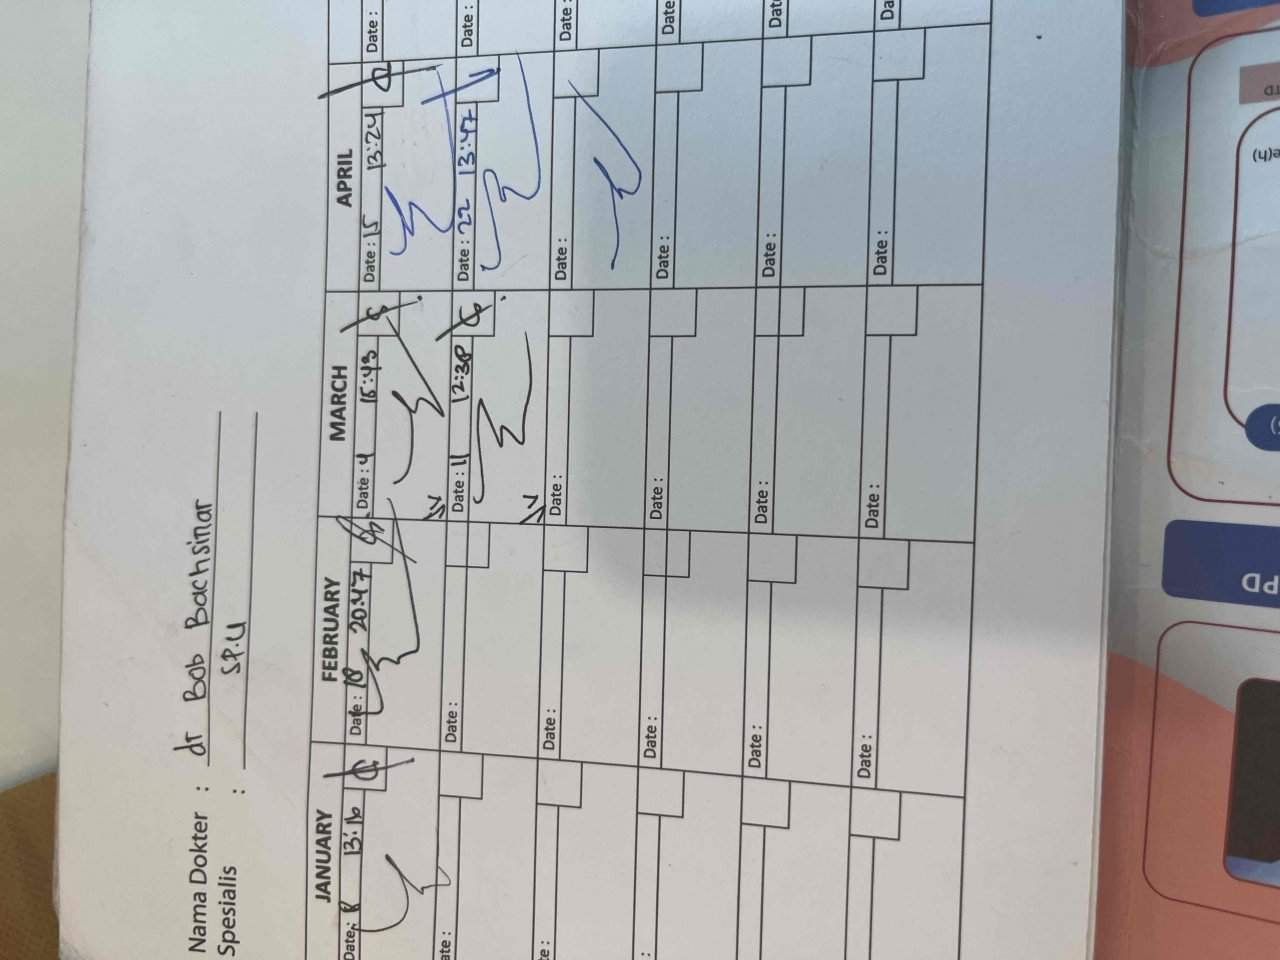 Nama Dokter : dr Bob Bachsinar
Spesialis : SP.U
JANUARY FEBRUARY MARCH APRIL
Date: 8 13:16 Date: 18 20.47 Date: 4 15:43 Date: 15 13:24 Date:
ate: Date: Date: 11 12:38 Date: 22 13:47 Date:
te: Date: Date: Date: Date:
: Date: Date: Date: Date:
Date: Date: Date: Date:
Date: Date: Date: Da
TD
e(h)
PD